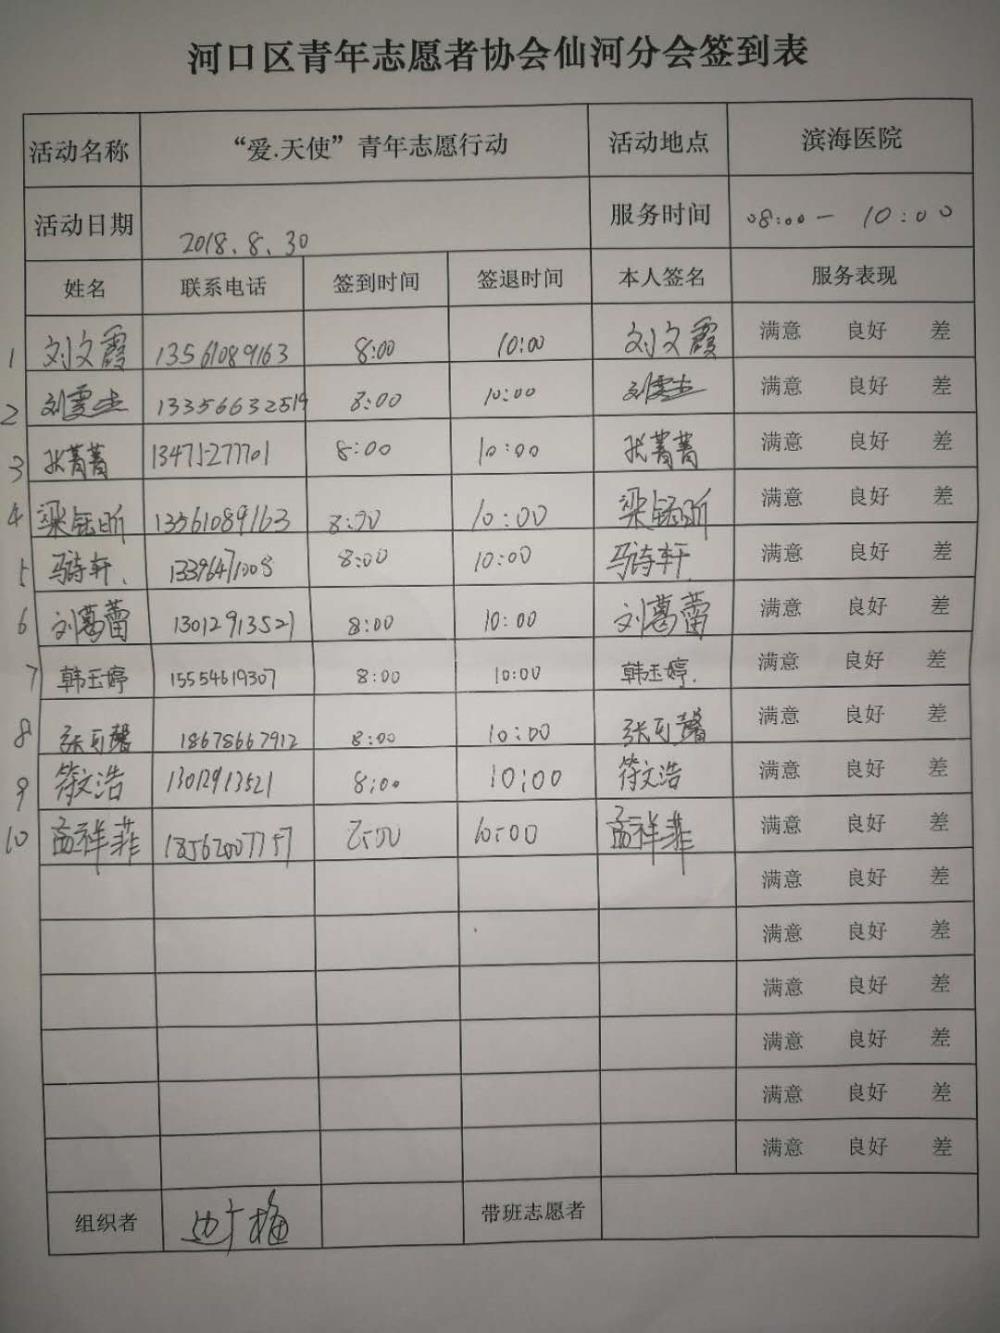 河口区青年志愿者协会仙河分会签到表
活动名称 “爱.天使”青年志愿行动 活动地点 滨海医院
活动日期 2018.8.30 服务时间 08:00 — 10:00
姓名 联系电话 签到时间 签退时间 本人签名 服务表现
1 刘文霞 13561089163 8:00 10:00 刘文霞 满意 良好 差
2 刘雯 13356632519 8:00 10:00 刘雯 满意 良好 差
3 张菁菁 13471277701 8:00 10:00 张菁菁 满意 良好 差
4 梁钰昕 13561089163 8:00 10:00 梁钰昕 满意 良好 差
5 马诗轩. 13396471008 8:00 10:00 马诗轩. 满意 良好 差
6 刘葛蕾 13012913521 8:00 10:00 刘葛蕾 满意 良好 差
7 韩玉婷 15554619307 8:00 10:00 韩玉婷. 满意 良好 差
8 张可馨 18678667912 8:00 10:00 张可馨 满意 良好 差
9 符文浩 13012913521 8:00 10:00 符文浩 满意 良好 差
10 孟祥菲 18562007757 8:00 10:00 孟祥菲 满意 良好 差
满意 良好 差
满意 良好 差
满意 良好 差
满意 良好 差
满意 良好 差
满意 良好 差
组织者 边广梅 带班志愿者